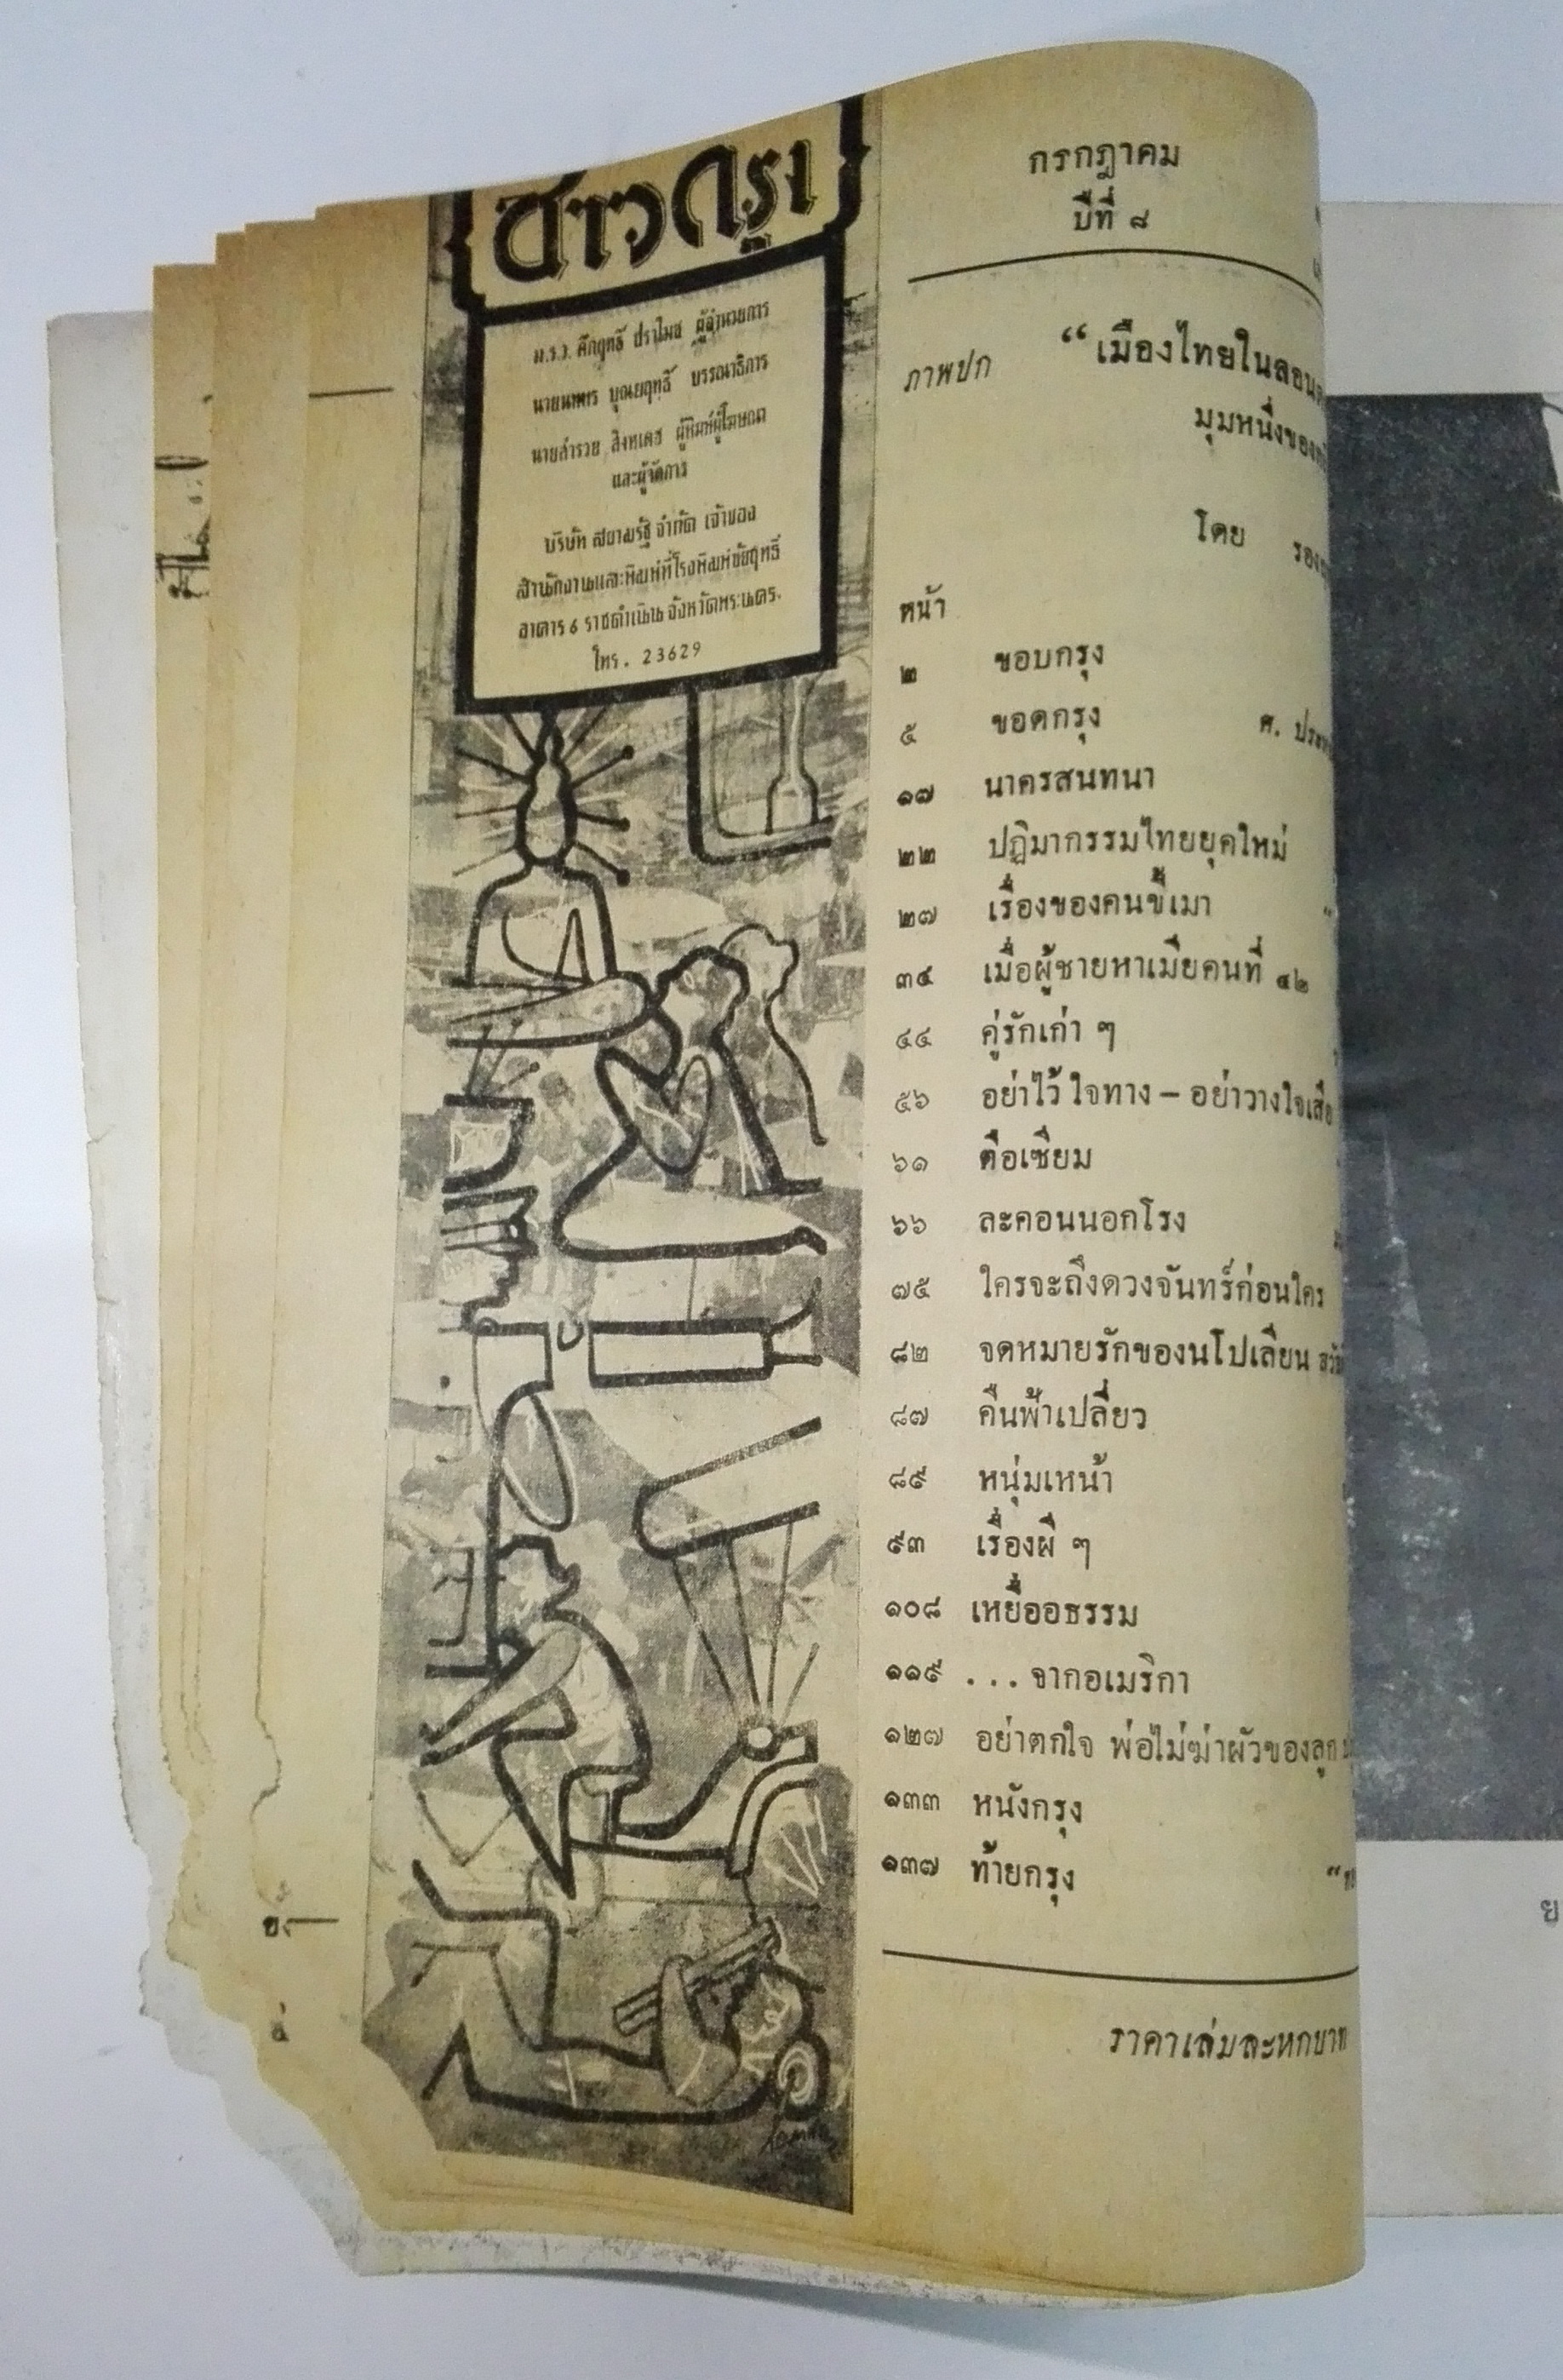 ชาวกรุง
ม.ร.ว. คึกฤทธิ์ ปราโมช ผู้อำนวยการ
นายนพพร บุณยฤทธิ์ บรรณาธิการ
นายสำรวย สิงหเดช ผู้พิมพ์ผู้โฆษณา
และผู้จัดการ
บริษัท สยามรัฐ จำกัด เจ้าของ
สำนักงานและพิมพ์ที่โรงพิมพ์ชัยฤทธิ์
อาคาร ๖ ราชดำเนิน จังหวัดพระนคร.
โทร. 23629
กรกฎาคม
ปีที่ ๘
ภาพปก “เมืองไทยในลอนด
มุมหนึ่งของ
โดย รอง
หน้า
๒ ขอบกรุง
๕ ขอดกรุง ศ. ประ
๑๗ นาครสนทนา
๒๒ ปฏิมากรรมไทยยุคใหม่
๒๗ เรื่องของคนขี้เมา
๓๔ เมื่อผู้ชายหาเมียคนที่ ๔๒
๔๔ คู่รักเก่า ๆ
๕๖ อย่าไว้ใจทาง – อย่าวางใจเสือ
๖๑ ตือเซียม
๖๖ ละคอนนอกโรง
๗๕ ใครจะถึงดวงจันทร์ก่อนใคร
๘๒ จดหมายรักของนโปเลียน
๘๗ คืนฟ้าเปลี่ยว
๘๙ หนุ่มเหน้า
๙๓ เรื่องผี ๆ
๑๐๘ เหยื่ออธรรม
๑๑๙ ...จากอเมริกา
๑๒๗ อย่าตกใจ พ่อไม่ฆ่าผัวของลูก
๑๓๓ หนังกรุง
๑๓๗ ท้ายกรุง
ราคาเล่มละหกบาท
ย